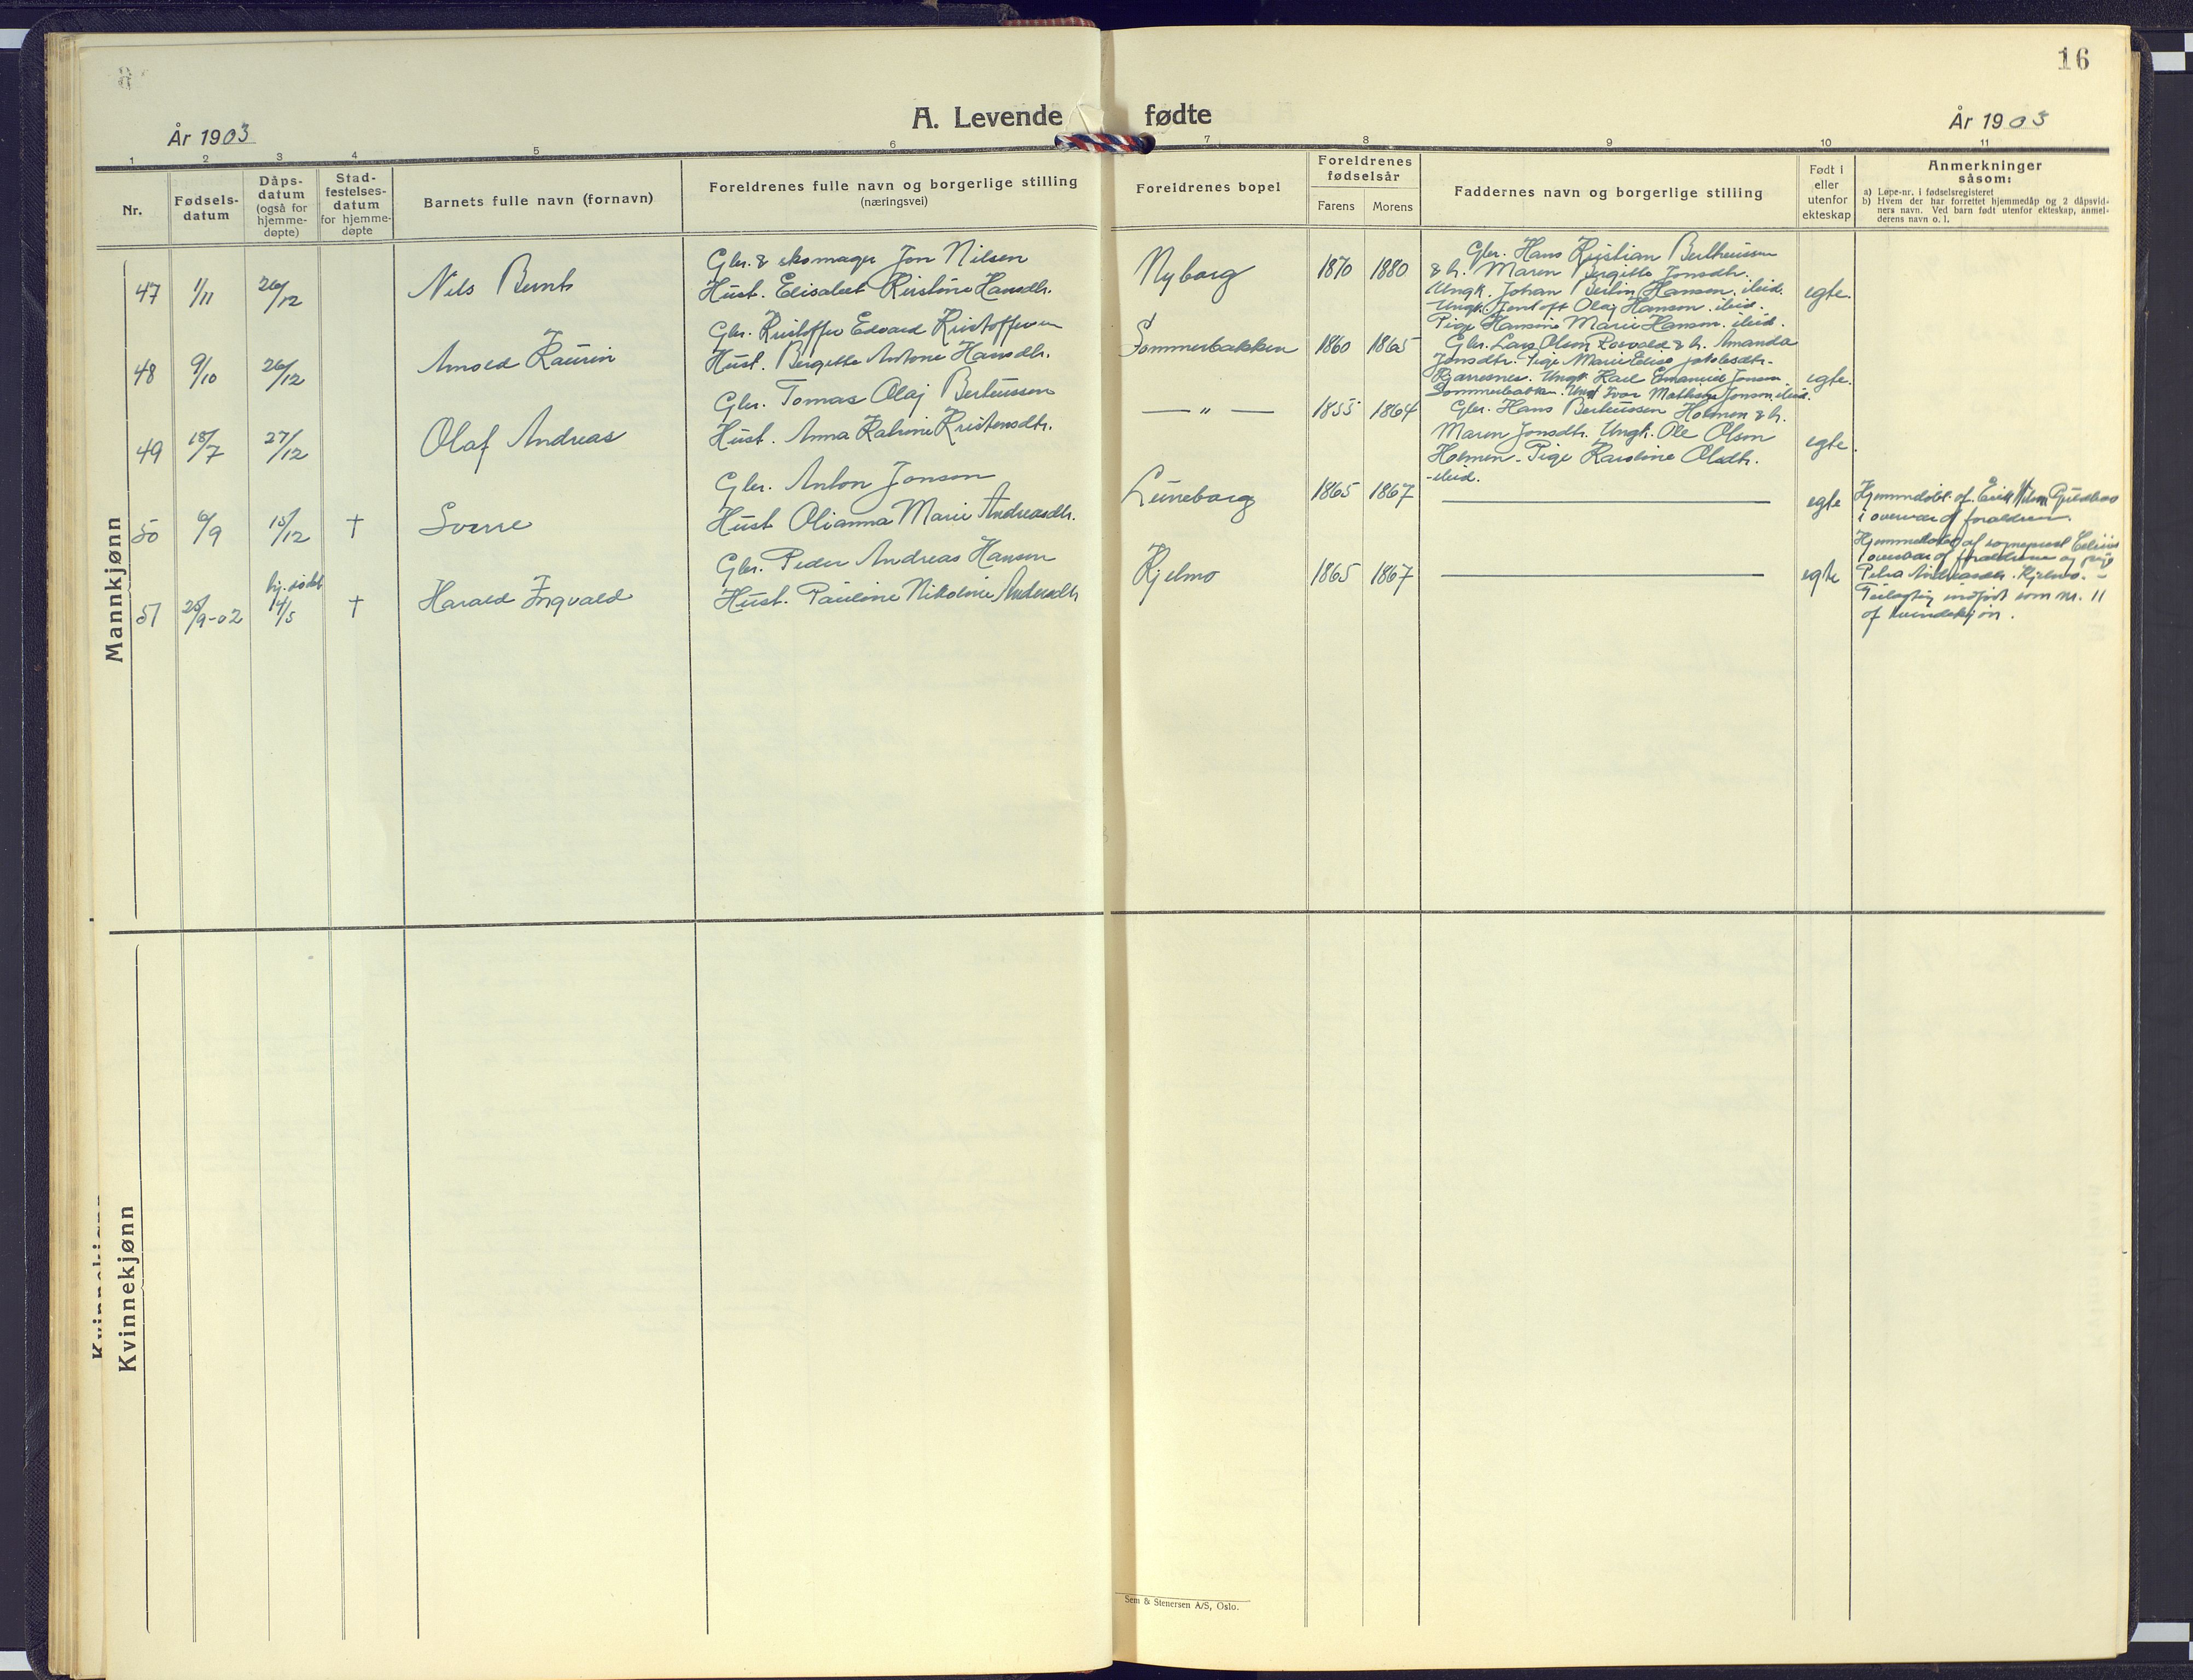 16
A. Levende fødte
År 1903
År 1903
1 2 3 4 5 6 7 8 9 10 11
Nr.
Fødsels-
datum
Dåps-
datum
(også for
hjemme-
døpte)
Stad-
festelses-
datum
for hjemme-
døpte
Barnets fulle navn (fornavn)
Foreldrenes fulle navn og borgerlige stilling
(næringsvei)
Foreldrenes bopel
Foreldrenes
fødselsår
Farens Morens
Faddernes navn og borgerlige stilling
Født i
eller
utenfor
ekteskap
Anmerkninger
såsom:
a) Løpe-nr. i fødselsregisteret
b) Hvem der har forrettet hjemmedåp og 2 dåpsvid-
ners navn. Ved barn født utenfor ekteskap, anmel-
derens navn o. l.
Mannkjønn
47 1/11 26/12 Nils Bernt
Gbr. & skomager Jon Nilsen
Hust. Elisabet Kirstine Hansdtr.
Nyborg 1870 1880
Gbr. Hans Kristian Bertheussen
& h. Maren Bergitte Jonsdtr.
Ungk. Johan Bertin Hansen. ibid.
Ungk. Jentoft Olaj Hansen. ibid.
Pige Hansine Marie Hansen. ibid.
egte.
48 9/10 26/12 Arnold Kaurin
Gbr. Kristoffer Edvard Kristoffersen
Hust. Bergitte Antone Hansdtr.
Sommerbakken 1860 1865
Gbr. Lars Olsen Rosvald & h. Amanda
Jonsdtr. Pige Marie Elise Jakobsdtr.
Kjærresnes. Ungk. Karl Emanuel Jonsen
Sommerbakken. Ungk. Ivar Mathias Jonsen ibid.
egte.
49 18/7 27/12 Olaf Andreas
Gbr. Tomas Olaj Berteussen
Hust. Anna Katrine Kristensdtr.
— „ — 1855 1864
Gbr. Hans Berteussen Holmen & h.
Maren Jonsdtr. Ungk. Ole Olsen
Holmen. Pige Karoline Olsdtr.
- ibid.
egte.
50 6/9 15/12 † Sverre
Gbr. Anton Jonson
Hust Olianna Marie Andreasdtr.
Luneborg 1865 1867
egte
Hjemmedøbt af Erik Nilsen
i overvær af forældrene.
51 25/9-02 hj. døbt 4/5 † Harald Ingvald
Gbr. Peder Andreas Hansen
Hust. Pauline Nikoline Andersdtr
Kjelmo 1865 1867
egte
Hjemmedøbt af sogneprest
i overvær af forældrene og pige
Petra Andreasdtr. Kjelmo. -
indført som nr. 11
af kvindekjøn.
Kvinnekjønn
Kvinnekjønn
Sem & Stenersen A/S, Oslo.